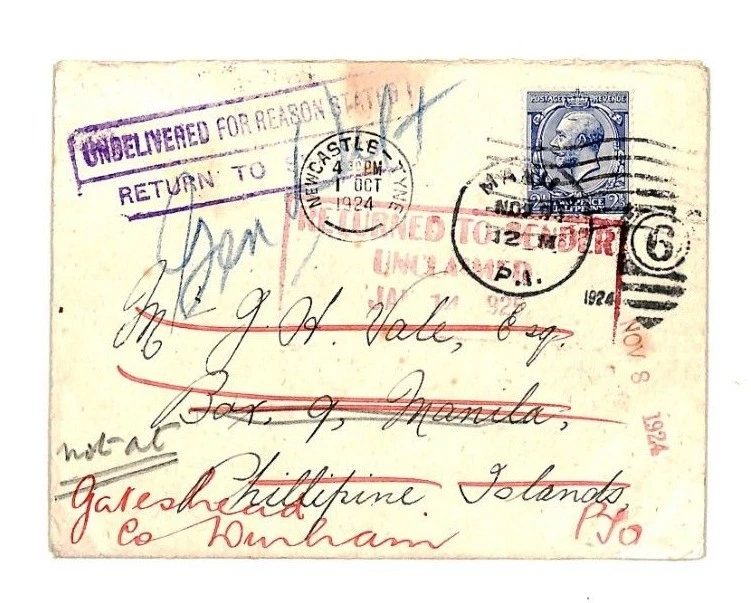 UNDELIVERED FOR REASON STATED
RETURN TO
NEWCASTLE-TYNE
4 PM
1 OCT
1924
POSTAGE REVENUE
HALFPENNY
2½
MANILA
NOV
12 M
P.I.
1924
6
RETURNED TO SENDER
UNCLAIMED
JAN
NOV 8 1924
M J. H. Vale, Esq.
Box. 9, Manila,
Phillipine Islands,
not at
Gateshead
Co Durham